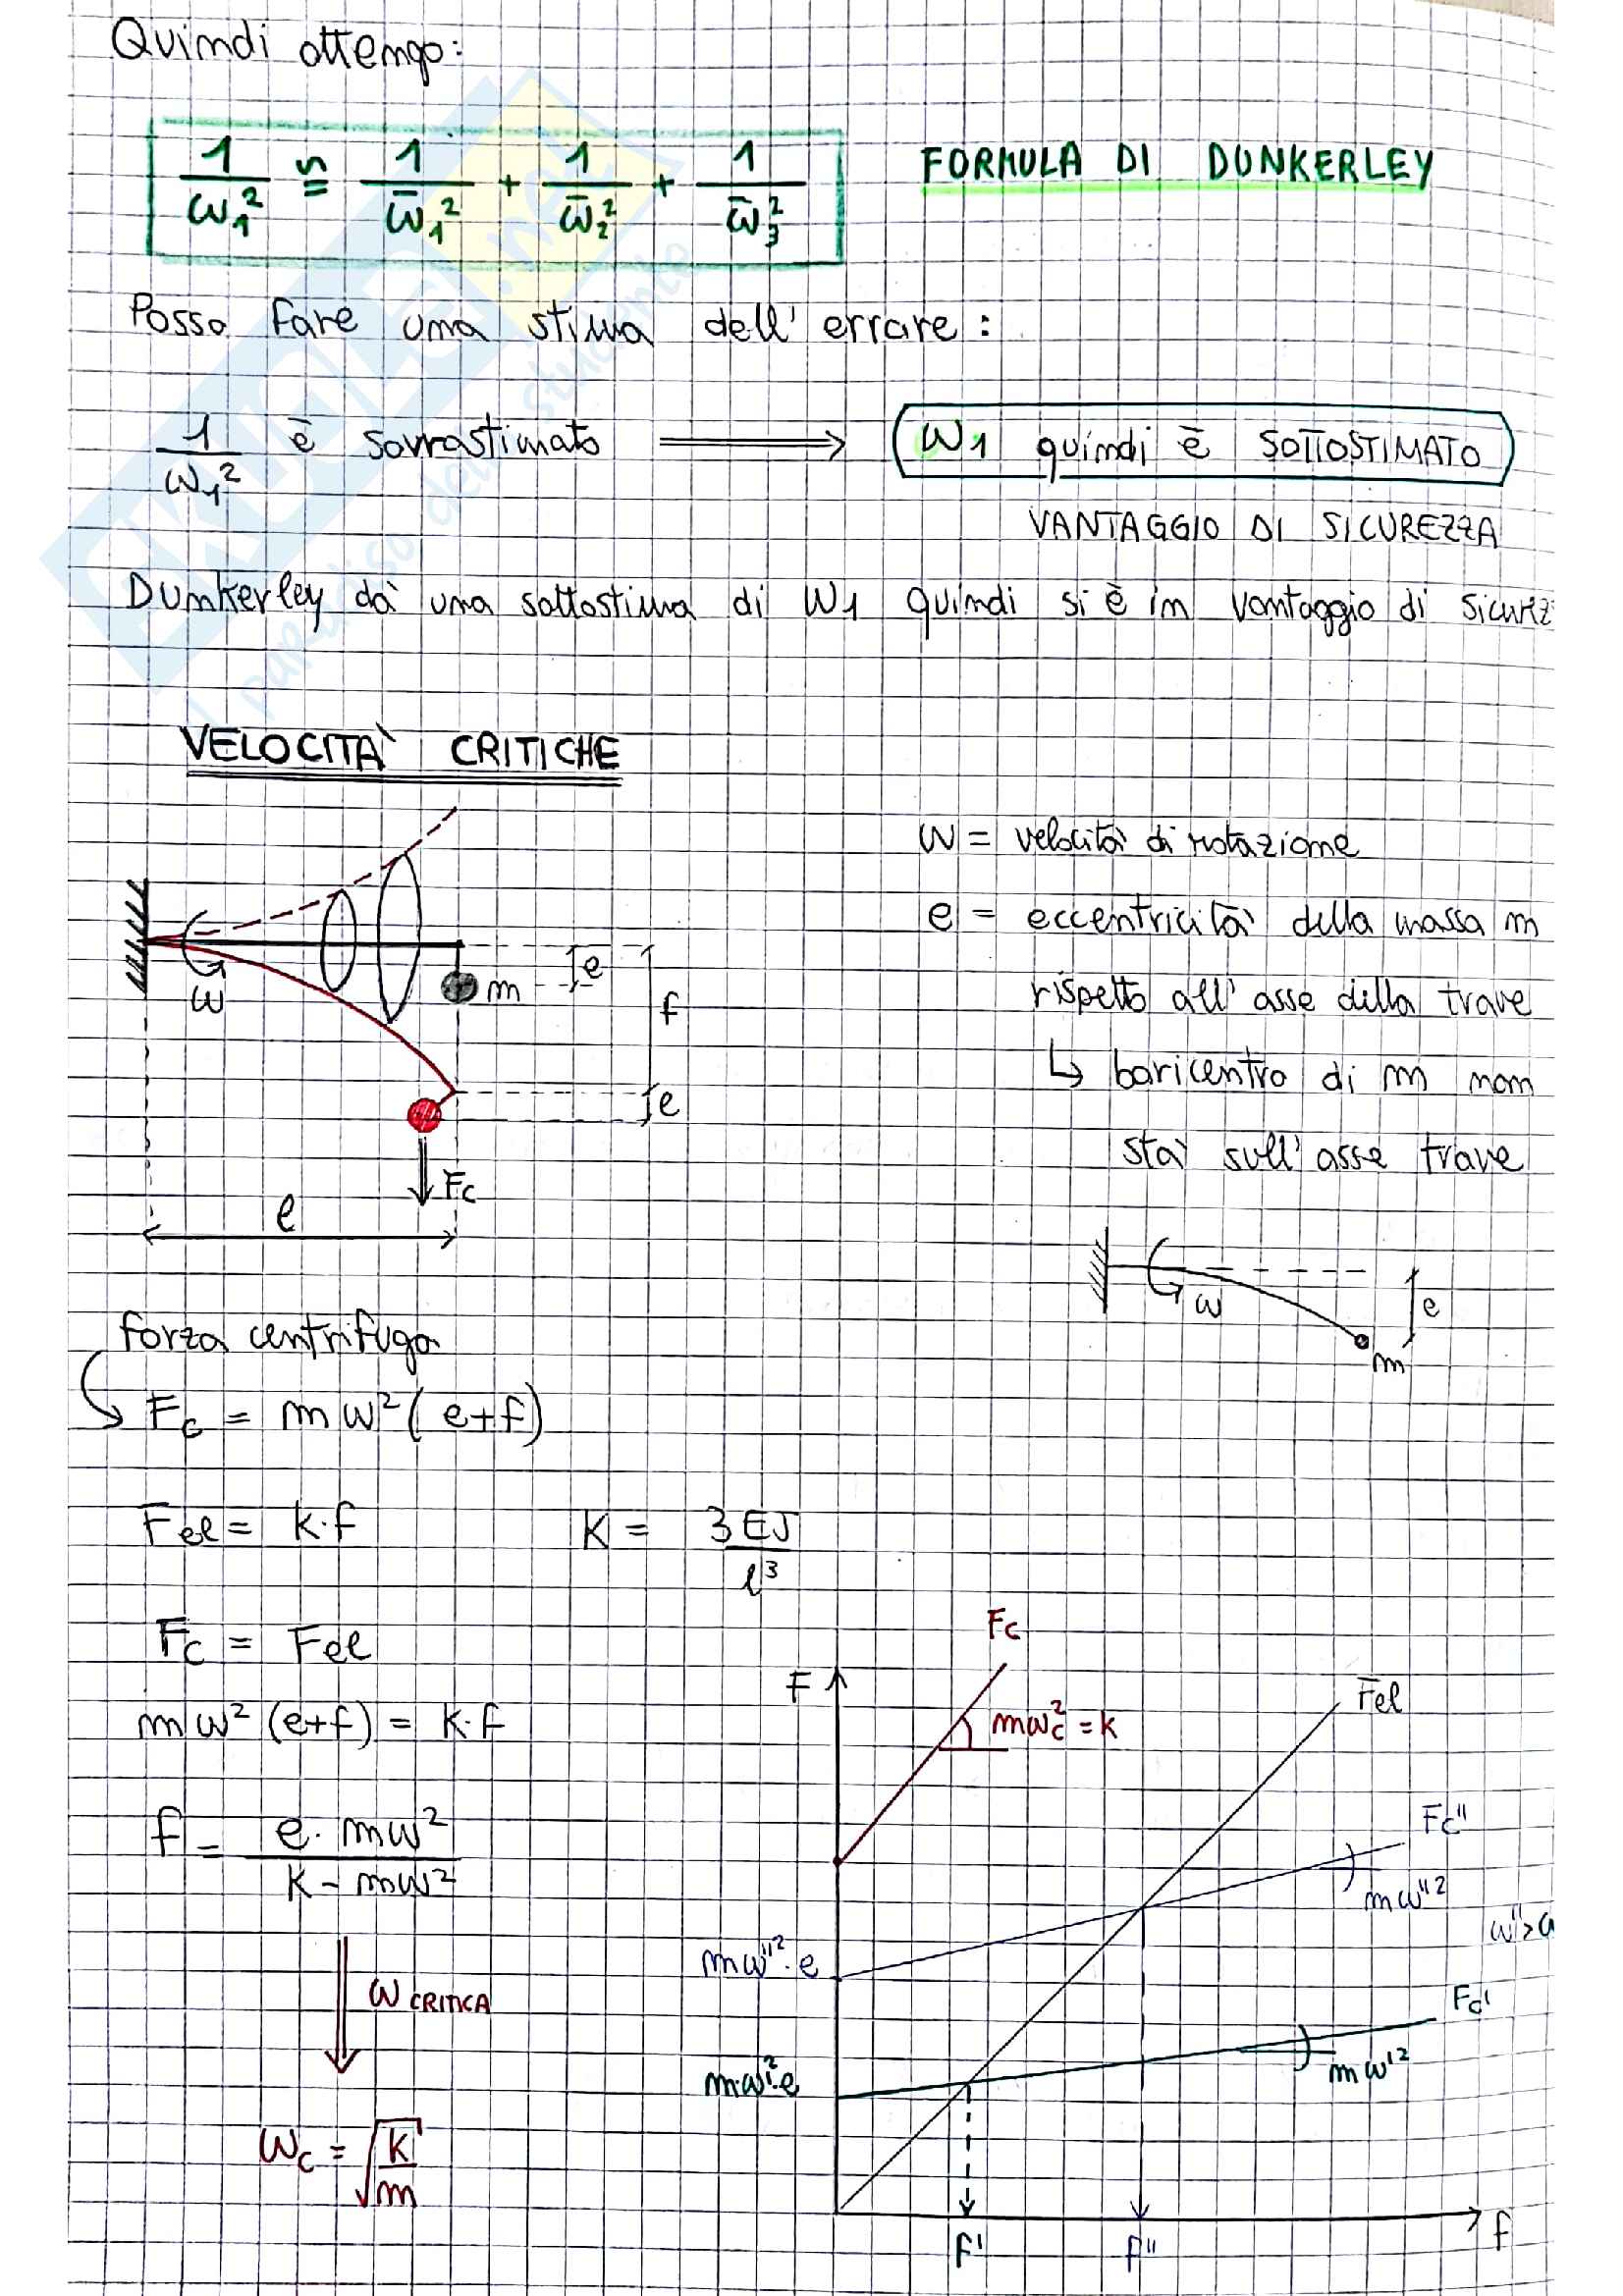 Quindi ottengo:
1/ω₁² ≅ 1/ω̄₁² + 1/ω̄₂² + 1/ω̄₃²   FORMULA DI DUNKERLEY
Posso fare una stima dell' errore :
1/ω₁² è sovrastimato ⟹ ω₁ quindi è SOTTOSTIMATO
VANTAGGIO DI SICUREZZA
Dunkerley dà una sottostima di ω₁ quindi si è in vantaggio di sicurez
VELOCITÀ CRITICHE
ω = velocità di rotazione
e = eccentricità della massa m
rispetto all' asse della trave
↳ baricentro di m non
sta sull' asse trave
ω
m
e
f
e
Fc
l
ω
e
m
forza centrifuga
Fc = mω²( e+f)
Fel = k·f   K = 3EJ/l³
Fc = Fel
mω² (e+f) = k·f
f = e·mω²/(k-mω²)
ω CRITICA
ωc = √(k/m)
F
Fc
mωc² = k
Fel
Fc''
mω''²
ω''>ω
mω''²·e
Fc'
mω'²
mω'²·e
f'
f''
f
SKUOLA.net
il paradiso dello studente